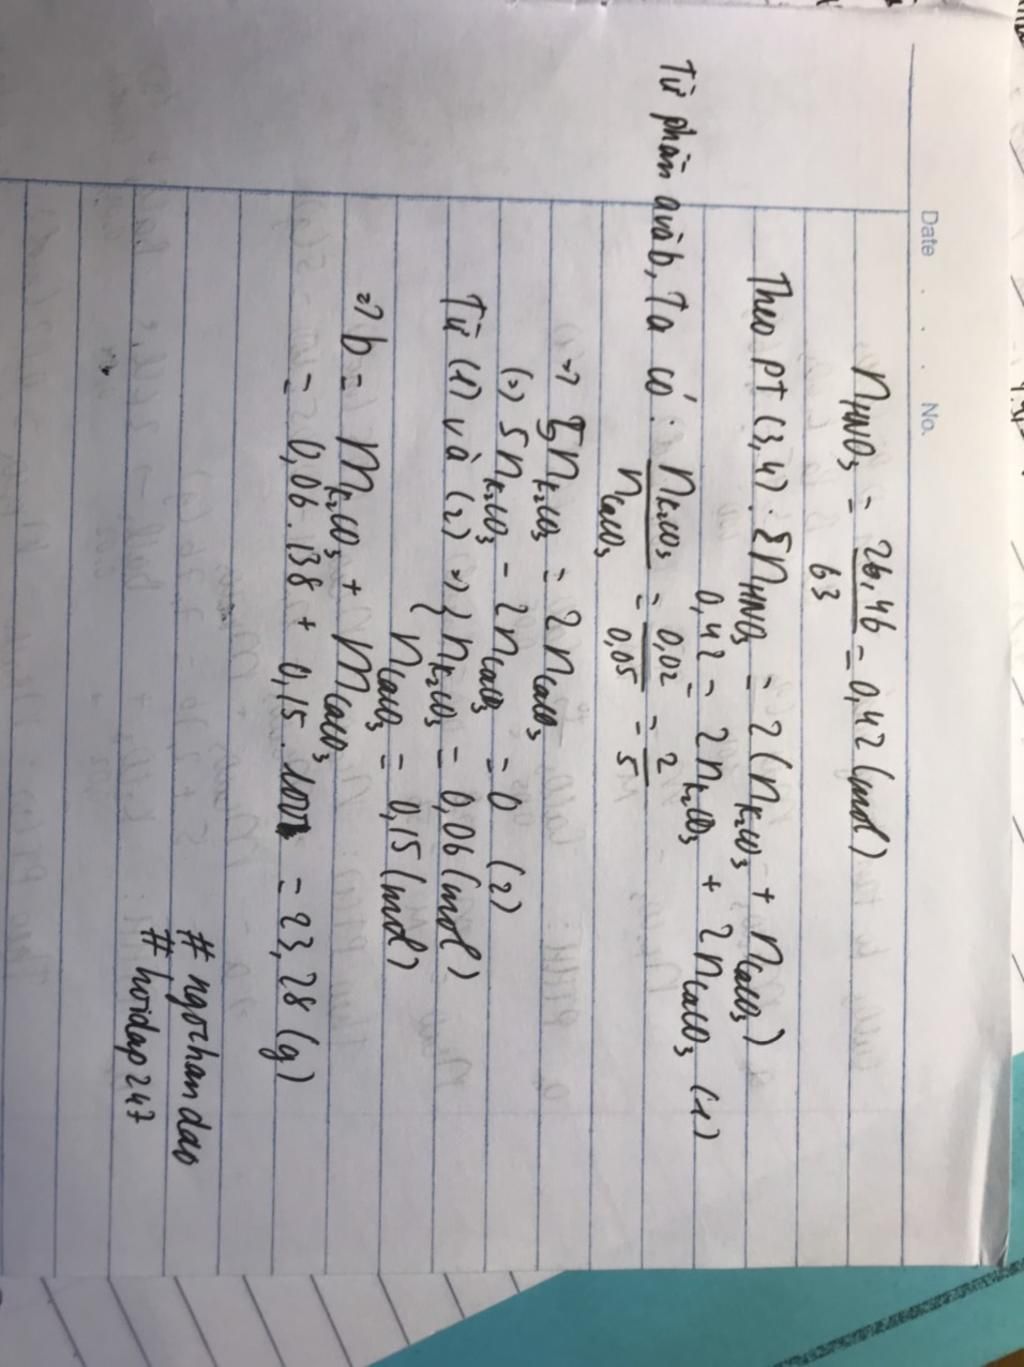 Date . . . No.
nHNO₃ = 26,46/63 = 0,42 (mol)
Theo pt (3,4): ΣnHNO₃ = 2(nK₂CO₃ + nCaCO₃)
0,42 = 2nK₂CO₃ + 2nCaCO₃ (1)
Từ phần a và b, Ta có: nK₂CO₃/nCaCO₃ = 0,02/0,05 = 2/5
=> 5nK₂CO₃ = 2nCaCO₃
(=) 5nK₂CO₃ - 2nCaCO₃ = 0 (2)
Từ (1) và (2) => { nK₂CO₃ = 0,06 (mol)
nCaCO₃ = 0,15 (mol)
=> b = mK₂CO₃ + mCaCO₃
= 0,06.138 + 0,15.100 = 23,28 (g)
#ngochandao
#hoidap247